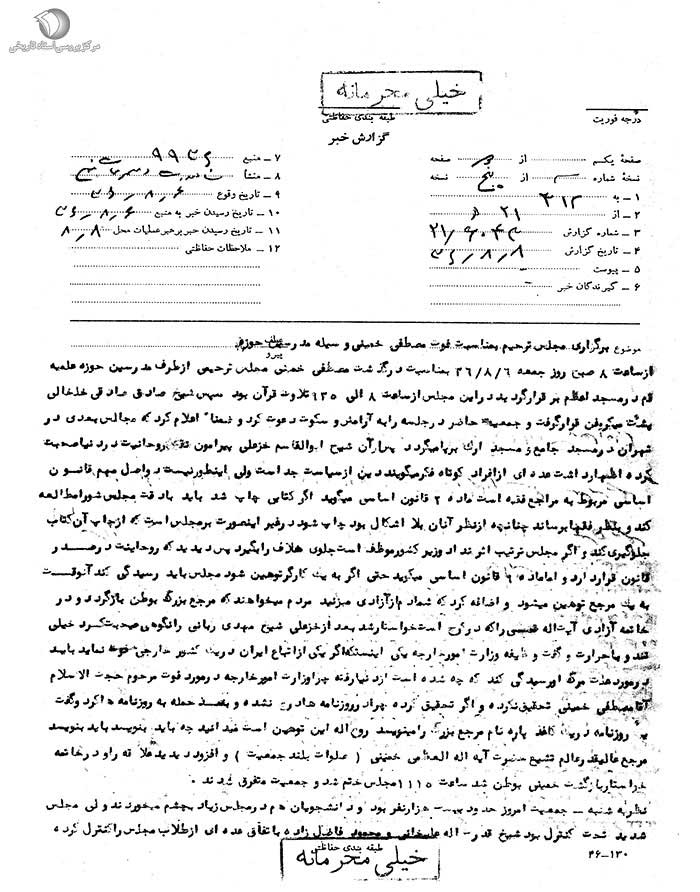 مرکز بررسی اسناد تاریخی
خیلی محرمانه
طبقه بندی حفاظتی
درجه فوریت
گزارش خبر
صفحه یکم از دو صفحه
نسخه شماره از پنج نسخه
۱ ـ به ۳۱۲
۲ ـ از ۲۱ ه
۳ ـ شماره گزارش
۴ ـ تاریخ گزارش ۳۶/۸/۸
۵ ـ پیوست
۶ ـ گیرندگان خبر
۷ ـ منبع
۸ ـ منشأ
۹ ـ تاریخ وقوع ۳۶/۸/۶
۱۰ ـ تاریخ رسیدن خبر به منبع ۳۶/۸/۶
۱۱ ـ تاریخ رسیدن خبر برهبر عملیات محل ۸/۸
۱۲ ـ ملاحظات حفاظتی
موضوع برگزاری مجلس ترحیم بمناسبت فوت مصطفی خمینی وسیله مدرسین حوزه
پیرو
از ساعت ۸ صبح روز جمعه ۳۶/۸/۶ بمناسبت درگذشت مصطفی خمینی مجلس ترحیمی از طرف مدرسین حوزه علمیه
قم در مسجد اعظم برقرار گردید در این مجلس از ساعت ۸ الی تلاوت قرآن بود سپس شیخ صادق صادقی خلخالی
پشت میکرفن قرار گرفت و جمعیت حاضر در جلسه را به آرامش و سکوت دعوت کرد و ضمنا اعلام کرد که مجالس بعدی در
تهران در مسجد جامع و مسجد ارک برپا میگردد پس از آن شیخ ابوالقاسم خزعلی پیرامون نقش روحانیت در دنیا صحبت
کرده اظهار داشت عده ای از افراد کوتاه فکر میگویند دین از سیاست جدا است ولی اینطور نیست و اصل مهم قانون
اساسی مربوط به مراجع فقیه است ماده ۲ قانون اساسی میگوید اگر کتابی چاپ شد باید با دقت مجلس شورا مطالعه
کند و بنظر فقها برساند چنانچه از نظر آنان بلا اشکال بود چاپ شود در غیر اینصورت بر مجلس است که از چاپ آن کتاب
جلوگیری کند و اگر مجلس ترتیب اثر نداد وزیر کشور موظف است جلوی خلاف را بگیرد پس دیدید که روحانیت در صدر
قانون قرار دارد و اما ماده ۶ قانون اساسی میگوید حتی اگر به یک کارگر توهین شود مجلس باید رسیدگی کند آنوقت
به یک مرجع توهین میشود و اضافه کرد که شما دم از آزادی میزنید مردم میخواهند که مرجع بزرگ بوطن بازگردد و در
خاتمه آزادی آیت اله قمی را که در کرج است خواستار شد بعد از خزعلی شیخ مهدی ربانی رانکوهی صحبت کرد خیلی
تند و با حرارت و گفت وظیفه وزارت امور خارجه یکی اینستکه اگر یکی از اتباع ایران در یک کشور خارجی فوت نماید باید
در مورد علت مرگ او رسیدگی کند که چه شده است از دنیا رفته چرا وزارت امور خارجه در مورد فوت مرحوم حجت الاسلام
آقا مصطفی خمینی تحقیق نکرده و اگر تحقیق کرده چرا در روزنامه ها درج نشده و بعد حمله به روزنامه ها کرد و گفت
یک روزنامه در یک کاغذ پاره نام مرجع بزرگ را مینویسد روح اله این توهین است میدانید چه باید بنویسد باید بنویسد
مرجع عالیقدر عالم تشیع حضرت آیه اله العظمی خمینی ( صلوات بلند جمعیت ) و افزود در خاتمه
خواستار بازگشت خمینی بوطن شد ساعت ۱۱۱۵ مجلس ختم شد و جمعیت متفرق شدند .
نظریه شنبه ـ جمعیت امروز حدود بیست هزار نفر بود و دانشجویان هم در مجلس زیاد بچشم میخوردند ولی مجلس
شدید تحت کنترل بود شیخ قدرت اله علیخانی و محمود فاضل زاده با اتفاق عده ای از طلاب مجلس را کنترل کرده
طبقه بندی حفاظتی
خیلی محرمانه
۴۶ـ۱۳۰